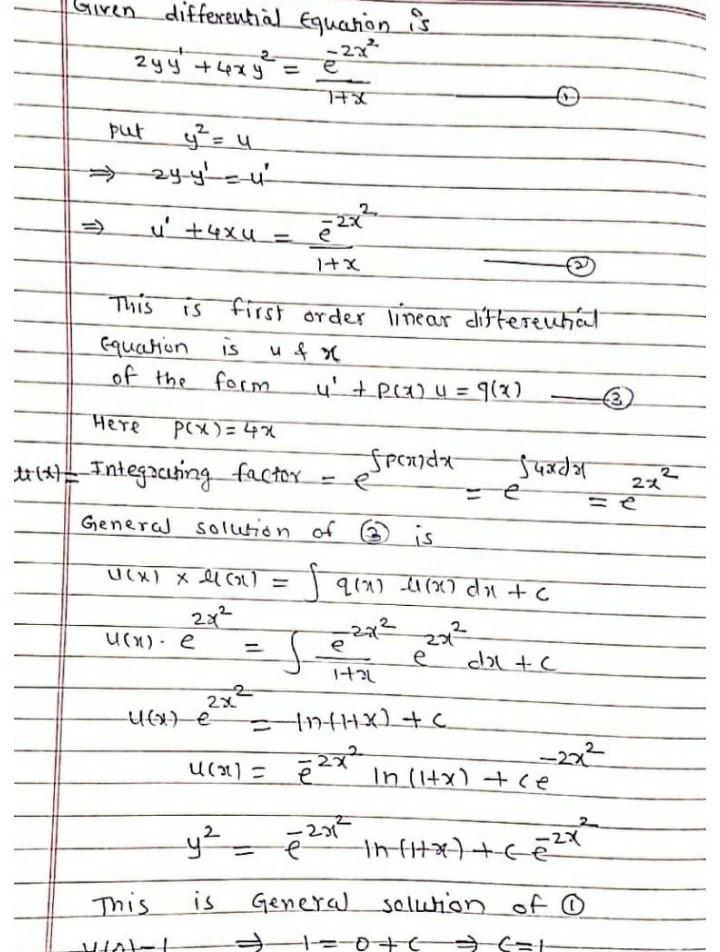 Given differential Equation is
2yy' + 4xy² = e^{-2x²}/(1+x) ——— ①
put y² = u
⇒ 2yy' = u'
⇒ u' + 4xu = e^{-2x²}/(1+x) ——— ②
This is first order linear differential
Equation is u & x
of the form u' + p(x) u = q(x) ——— ③
Here p(x) = 4x
μ(x) = Integrating factor = e^{∫p(x)dx} = e^{∫4xdx} = e^{2x²}
General solution of ③ is
u(x) × μ(x) = ∫ q(x) μ(x) dx + c
u(x) · e^{2x²} = ∫ e^{-2x²}/(1+x) e^{2x²} dx + c
u(x) e^{2x²} = ln(1+x) + c
u(x) = e^{-2x²} ln(1+x) + ce^{-2x²}
y² = e^{-2x²} ln(1+x) + c e^{-2x²}
This is General solution of ①
y(0)=1 ⇒ 1 = 0 + c ⇒ c=1